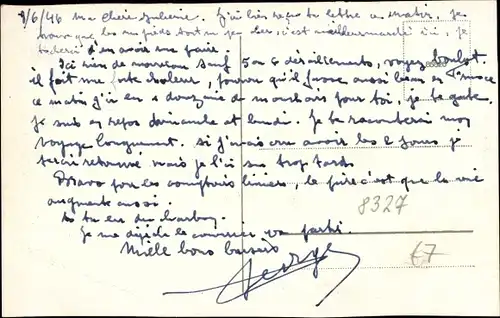 9/6/46 Ma Chère Julienne. J'ai bien reçu ta lettre ce matin, je
trouve que les
d'en avoir une paire.
Ici rien de nouveau sauf 5 ou 6 déraillements, voyez boulot.
il fait une forte chaleur, pourvu qu'il fasse aussi beau en
ce matin j'ai eu 1 douzaine de mouchoirs pour toi, je te gâte
je suis en repos dimanche et lundi. Je te raconterai mon
voyage longuement. si j'avais cru avoir les 2 jours je
serai retourné mais je l'ai su trop tard.
Bravo pour les, le pire c'est que la vie
augmente aussi.
as tu eu du charbon.
Je me dépêche le courrier va partir.
Mille bons baisers
Georges
8327
£7